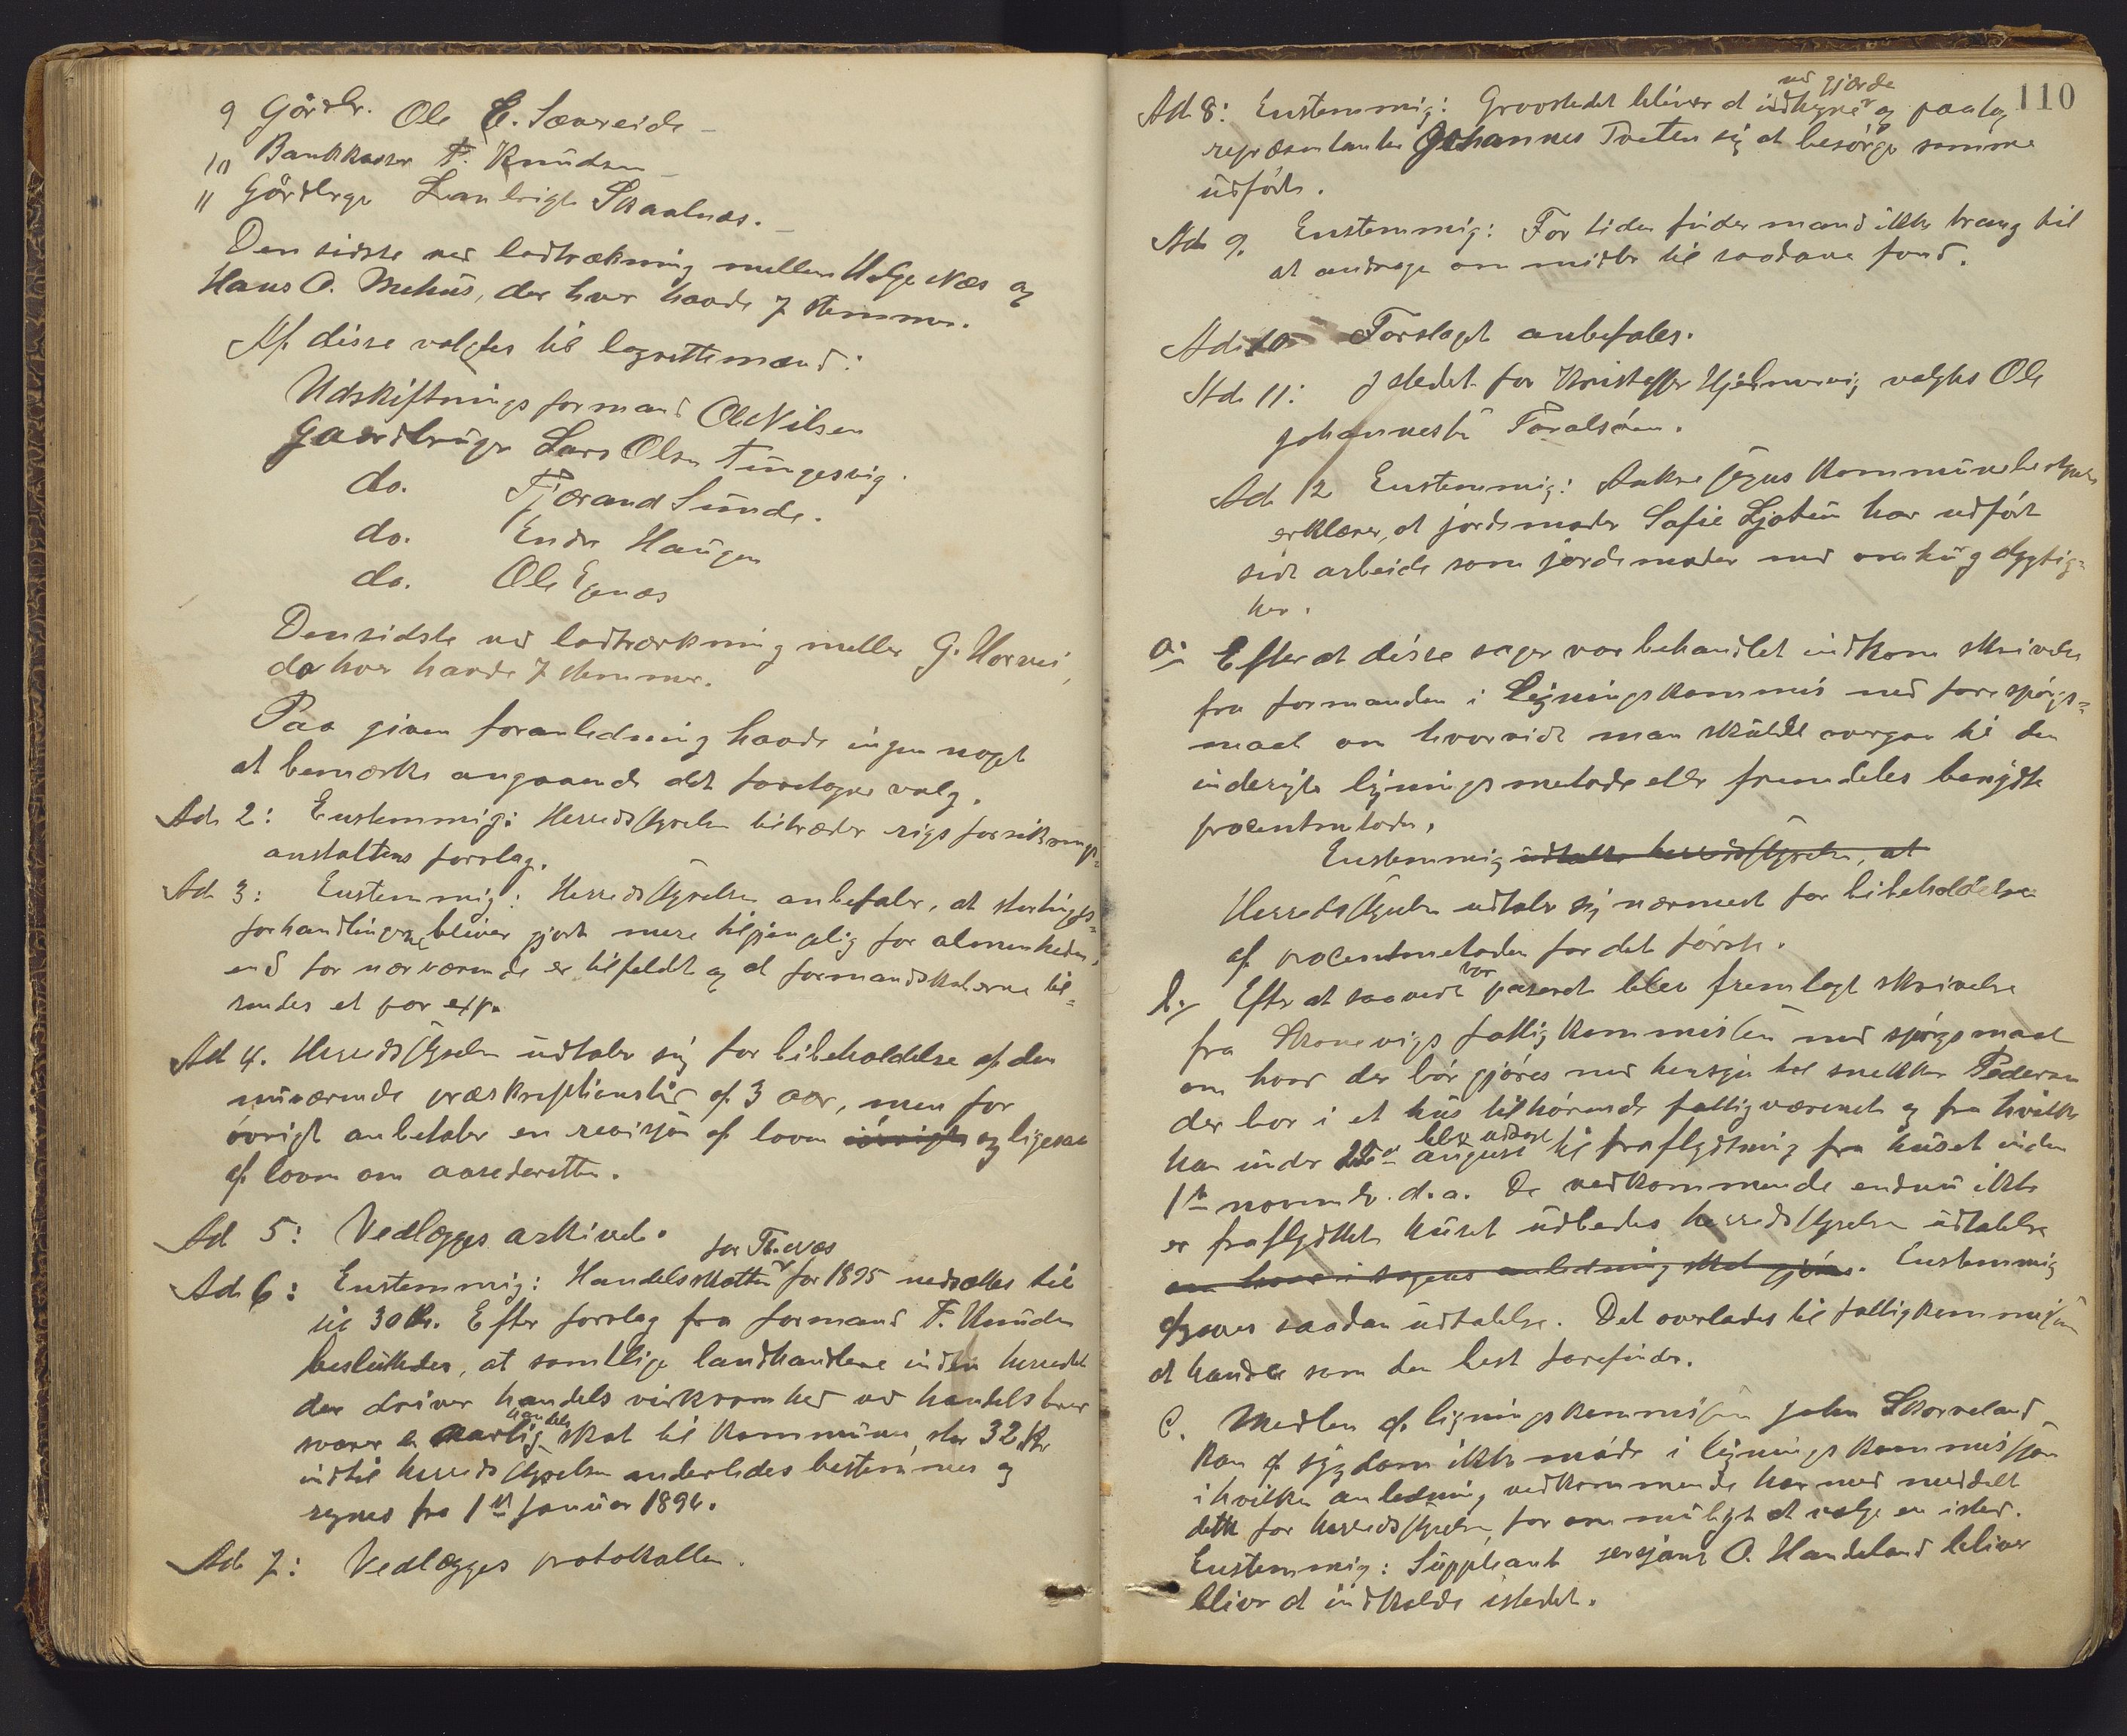 9 Gårdbr. Ole E. Sævreide
10 Bankkasser T. Knudsen
11 Gårdbrger Laubrigt Skaalnæs.
Den sidste ved lodtrækning mellem Helge Næs og
Hans O. Mehus, der hver havde 7 stemmer.
Af disse valgtes til lagrettemænd:
Udskiftningsformand Ole Nilsen
Gaardbruger Lars Olsen Tungesvig.
do. Tjerand Sunde.
do. Endre Haugen
do. Ole Egenæs
Den sidste ved lodtrækning mellem G. Horvei,
da hver havde 7 stemmer.
Paa given foranledning havde ingen noget
at bemærke angaaende det foretagne valg.
Ad. 2: Enstemmig: Herredsstyrelsen tiltræder rigsforsikrings-
anstaltens forslag.
Ad. 3: Enstemmig: Herredsstyrelsen anbefaler, at stortings-
forhandlingerne bliver gjort mere tilgjængelig for almenheden,
end for nærværende er tilfeldet og at formandskaberne til-
sendes et par exp.
Ad 4. Herredsstyrelsen udtaler sig for bibeholdelse af den
nuværende præskreptionstid af 3 aar, men for
övrigt anbefaler en revisjon af loven iövrigt og ligesaa
af loven om aasedesretten.
Ad 5: Vedlægges arkivet.
for Th. Næs
Ad 6: Enstemmig: Handelsskatten for 1895 nedsættes til
til 30 kr. Efter forslag fra formand T. Knudsen
besluttedes, at samtlige landhandlere inden herredet
der driver handels virksomhed ved handelsbrev
handels
svarer en aarlig skat til kommunen, stor 32 kr
indtil herredsstyrelsen anderledes bestemmer og
regnes fra 1ste januar 1896.
Ad 7: Vedlægges protokollen.
110
ved gjærde
Ad. 8: Enstemmig: Grovstedet bliver at indhegne og paatog
repræsentanten Johannes Tveten sig at besörge samme
udfört.
Ad 9. Enstemmig: For tiden finder mand ikke trang til
at andrage om midler til saadant fond.
Ad. 10 Forslaget anbefales.
Ad. 11: I stedet for Kristoffer Hjelmervig valgtes Ole
Johannes Toralsöen.
Ad 12 Enstemmig: Aakre sogns kommunebestyrelse
erklærer, at jordemoder Sofie Ljotun har udfört
sidt arbeide som jordemoder med omhu og dygtig-
hed.
a: Efter at disse sager var behandlet indkom skrivelse
fra formanden i Ligningskommis med forespörgs-
maal om hvorvidt man skulde overgaa til den
inderigte ligningsmetode eller fremdeles benytte
procentmetoden.
Enstemmig udtalte herredsstyrelsen, at
Herredsstyrelsen udtaler sig nærmest for bibeholdelse
af procentmetoden for det förste.
var
b: Efter at saavidt paseret blev fremlagt skrivelse
fra Skonevigs fattigkommission med spörgsmaal
om hvad der bör gjöres med hensyn til snekker Pedersen
der bor i et hus tilhörende fattigvæsenet og fra hvilke
blev udsat
han under 22de august til fraflytning fra huset inden
1ste novembr. d.a. Da vedkommende endnu ikke
er fraflyttet huset udbedes herredsstyrelsen udtalelse
om hvad i sagens anledning skal gjöres. Enstemmig
afgaves saadan udtalelse. Det overlades til fattigkommissionen
at handle som den best forefinder.
C. Medlem af ligningskommissionen John Skorveland
kan af sygdom ikke möde i ligningskommissjon
i hvilken anledning vedkommende har med meddelt
dette for herredsstyrelsen, for om muligt at vælge en isted.
Enstemmig: Suppleant sersjant O. Handeland bliver
bliver at indkalde istedet.